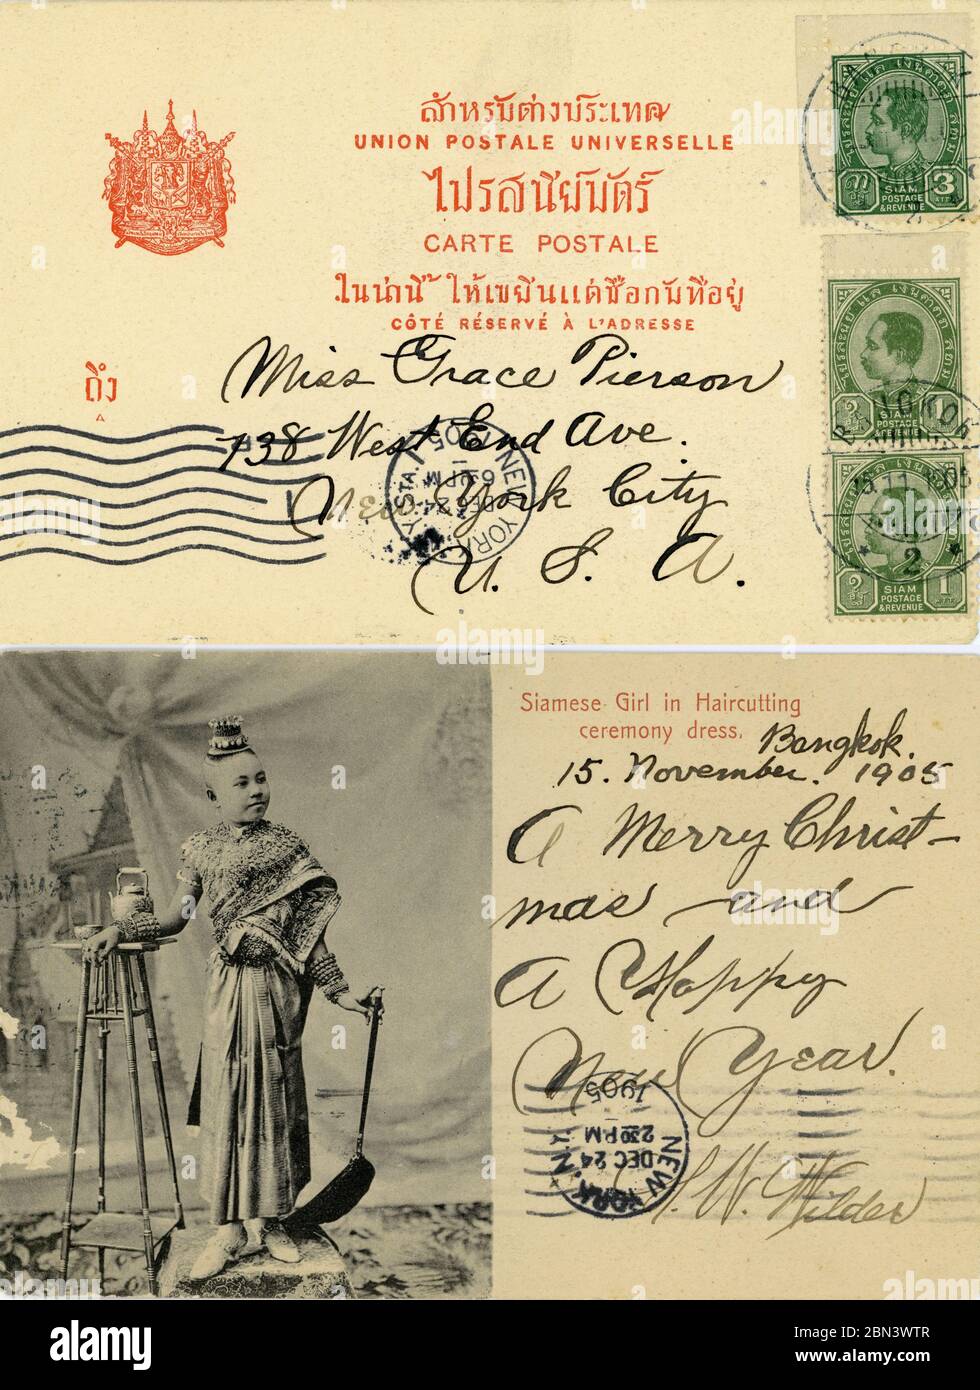 สำหรับต่างประเทศ
UNION POSTALE UNIVERSELLE
ไปรสนีย์บัตร์
CARTE POSTALE
ในน่านี้ ให้เขียนแต่ชื่อกับที่อยู่
CÔTÉ RÉSERVÉ À L'ADRESSE
ถึง
Miss Grace Pierson
738 West End Ave.
New York City
U. S. A.
NEW YORK, N.Y. STA.
DEC 24
6 PM
1905
3
SIAM
POSTAGE
& REVENUE
1
SIAM
POSTAGE
& REVENUE
BANGKOK
2
1
SIAM
POSTAGE
& REVENUE
Siamese Girl in Haircutting
ceremony dress.
Bangkok.
15. November. 1905
A Merry Christ-
mas and
A Happy
New Year.
W. Wilder
NEW YORK, N.Y.
DEC 24
2 30 PM
1905
alamy
Image ID: 2BN3WTR
www.alamy.com